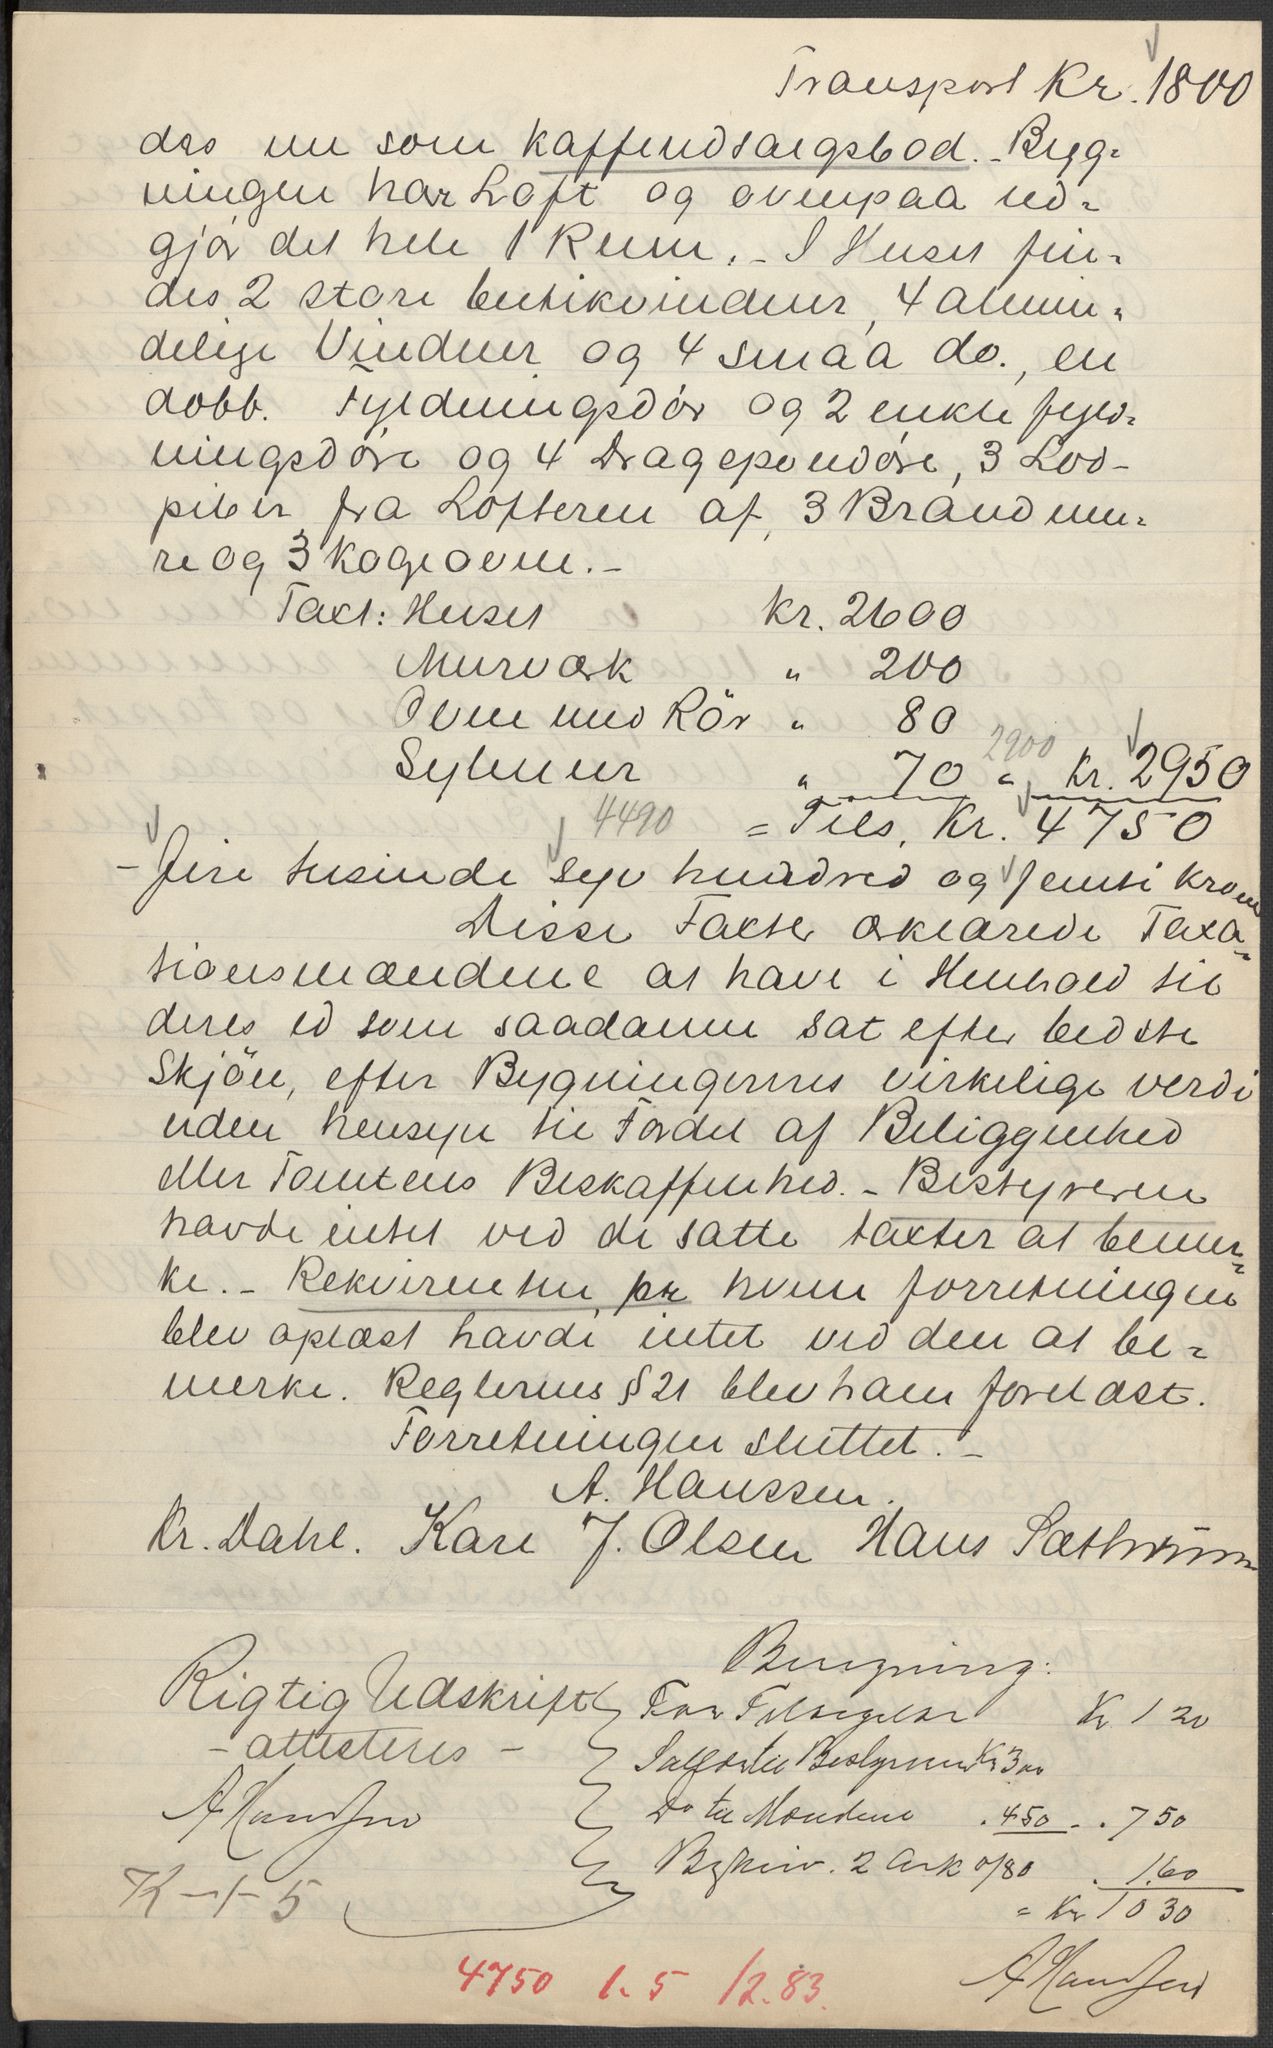 Transport Kr. 1800
des nu som Kaffeudsalgsbod. - Byg-
ningen har Loft og ovenpaa ud-
gjør det hele 1 Rum. - I Huset fin-
des 2 store butikvinduer, 4 almin-
delige Vinduer og 4 smaa do., en
dobb. Fyldningsdør og 2 enkle fyld-
ningsdøre og 4 Dragespondøre, 3 Lod-
piber fra Lofteren af, 3 Brandmu-
re og 3 Kogeovne. -
Taxt: Huset Kr. 2600
Murværk " 200
Ovne med Rör " 80
Sylmur " 70 " Kr. 2950
2900
4490 = Tils. Kr. 4750
- fire tusinde syv hundred og femti Kroner
Disse Taxter erklærede Taxa-
tionsmændene at have i Henhold til
deres ed som saadanne sat efter bedste
Skjön, efter Bygningernes virkelige verdi
uden hensyn til Fordel af Beliggenhed
eller Tomtens Beskaffenhed. - Bestyreren
havde intet ved de satte taxter at bemer-
ke. - Rekvirenten, for hvem forretningen
blev oplæst havde intet ved den at be-
merke. Reglernes § 21 blev ham forelæst.
Forretningen sluttet. -
A. Hanssen.
Kr. Dahl. Karl J. Olsen Hans Sæthrumm
Beregning:
Rigtig Udskrift For Følvigelse Kr 1 20
- attesteres - Salær til Bestyreren Kr 3 00
AHanssen Do til Mændene . 4 50 - . 7 50
Beskriv. 2 Ark o/80 . 1.60
K-1-5 = Kr 10 30
4750 1.5 1/2.83. AHanssen